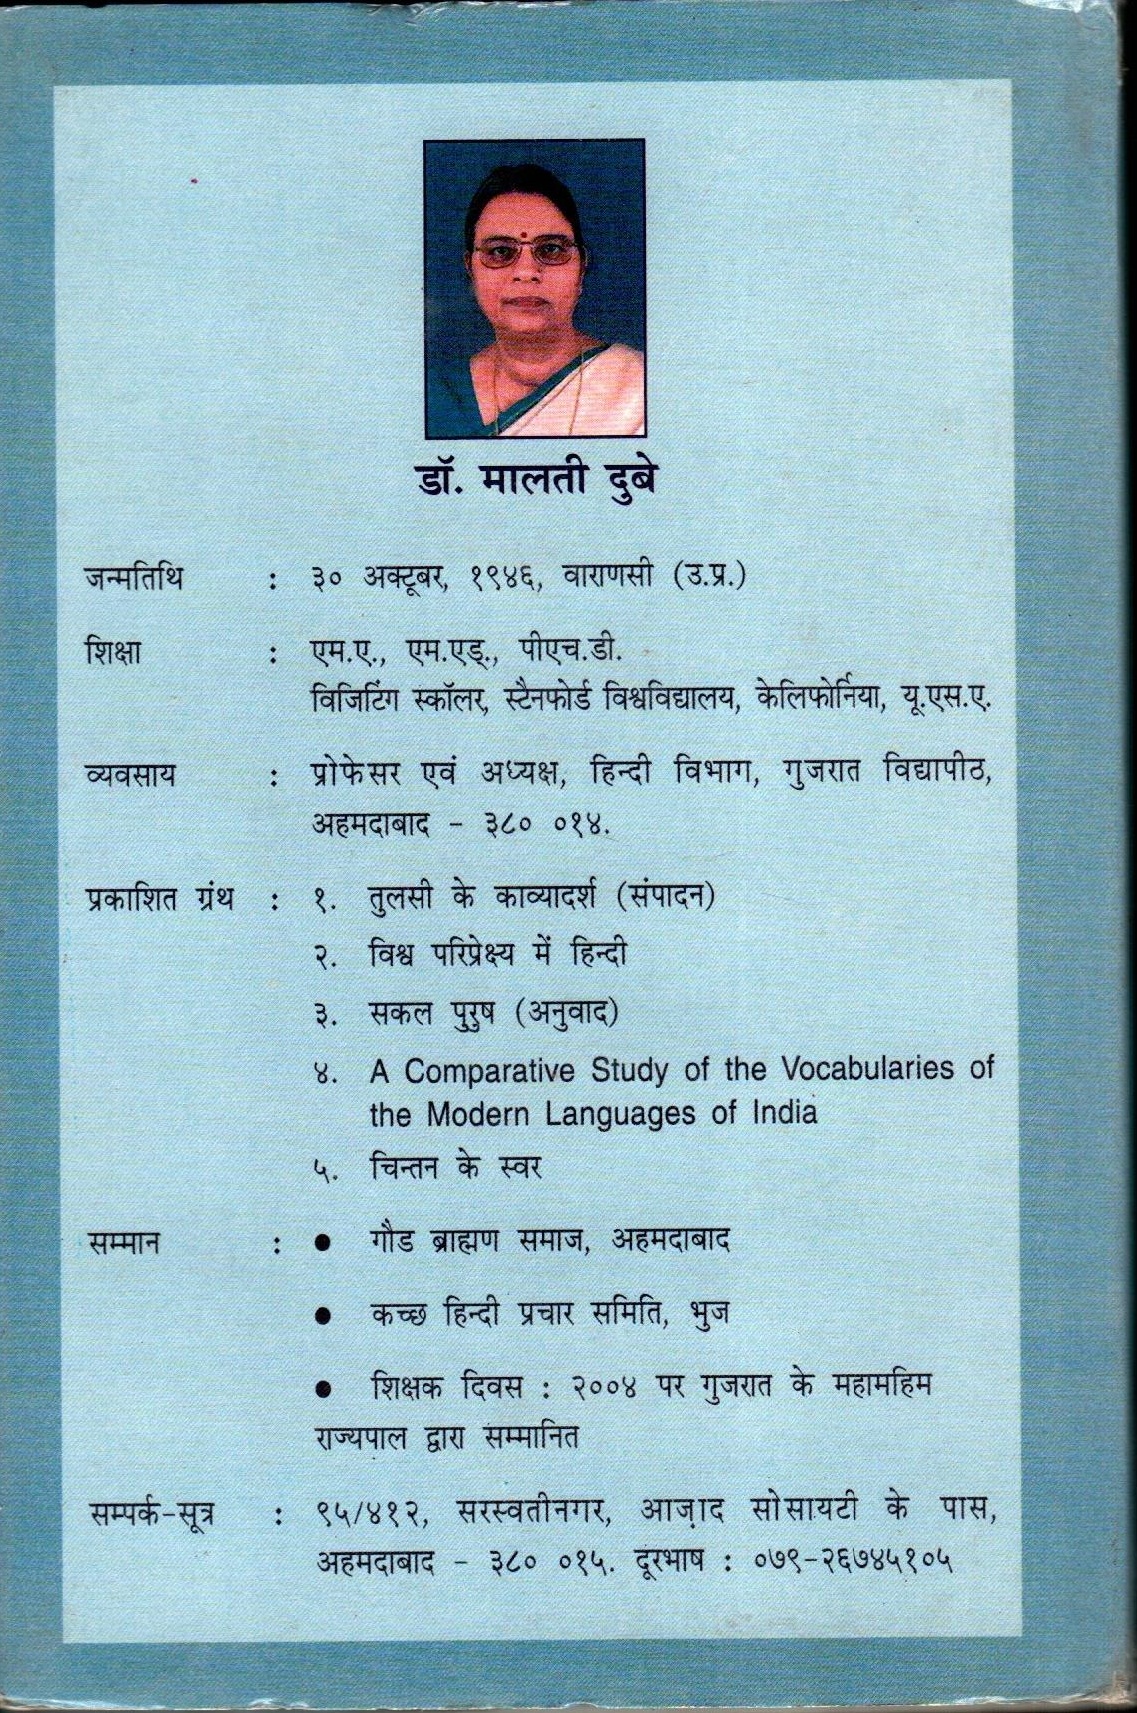 डॉ. मालती दुबे
जन्मतिथि : ३० अक्टूबर, १९४६, वाराणसी (उ.प्र.)
शिक्षा : एम.ए., एम.एड्., पीएच.डी.
विजिटिंग स्कॉलर, स्टैनफोर्ड विश्वविद्यालय, केलिफोर्निया, यू.एस.ए.
व्यवसाय : प्रोफेसर एवं अध्यक्ष, हिन्दी विभाग, गुजरात विद्यापीठ,
अहमदाबाद - ३८० ०१४.
प्रकाशित ग्रंथ : १. तुलसी के काव्यादर्श (संपादन)
२. विश्व परिप्रेक्ष्य में हिन्दी
३. सकल पुरुष (अनुवाद)
४. A Comparative Study of the Vocabularies of
the Modern Languages of India
५. चिन्तन के स्वर
सम्मान : ● गौड ब्राह्मण समाज, अहमदाबाद
● कच्छ हिन्दी प्रचार समिति, भुज
● शिक्षक दिवस : २००४ पर गुजरात के महामहिम
राज्यपाल द्वारा सम्मानित
सम्पर्क-सूत्र : ९५/४१२, सरस्वतीनगर, आज़ाद सोसायटी के पास,
अहमदाबाद - ३८० ०१५. दूरभाष : ०७९-२६७४५१०५